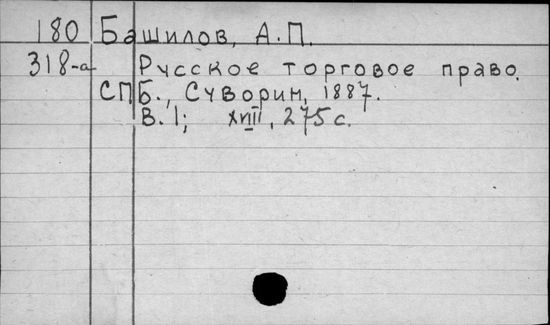 180 Башилов, А.П.
318-а Русское торговое право.
СПБ., Суворин, 1887.
В. 1; XVIII, 275 с.